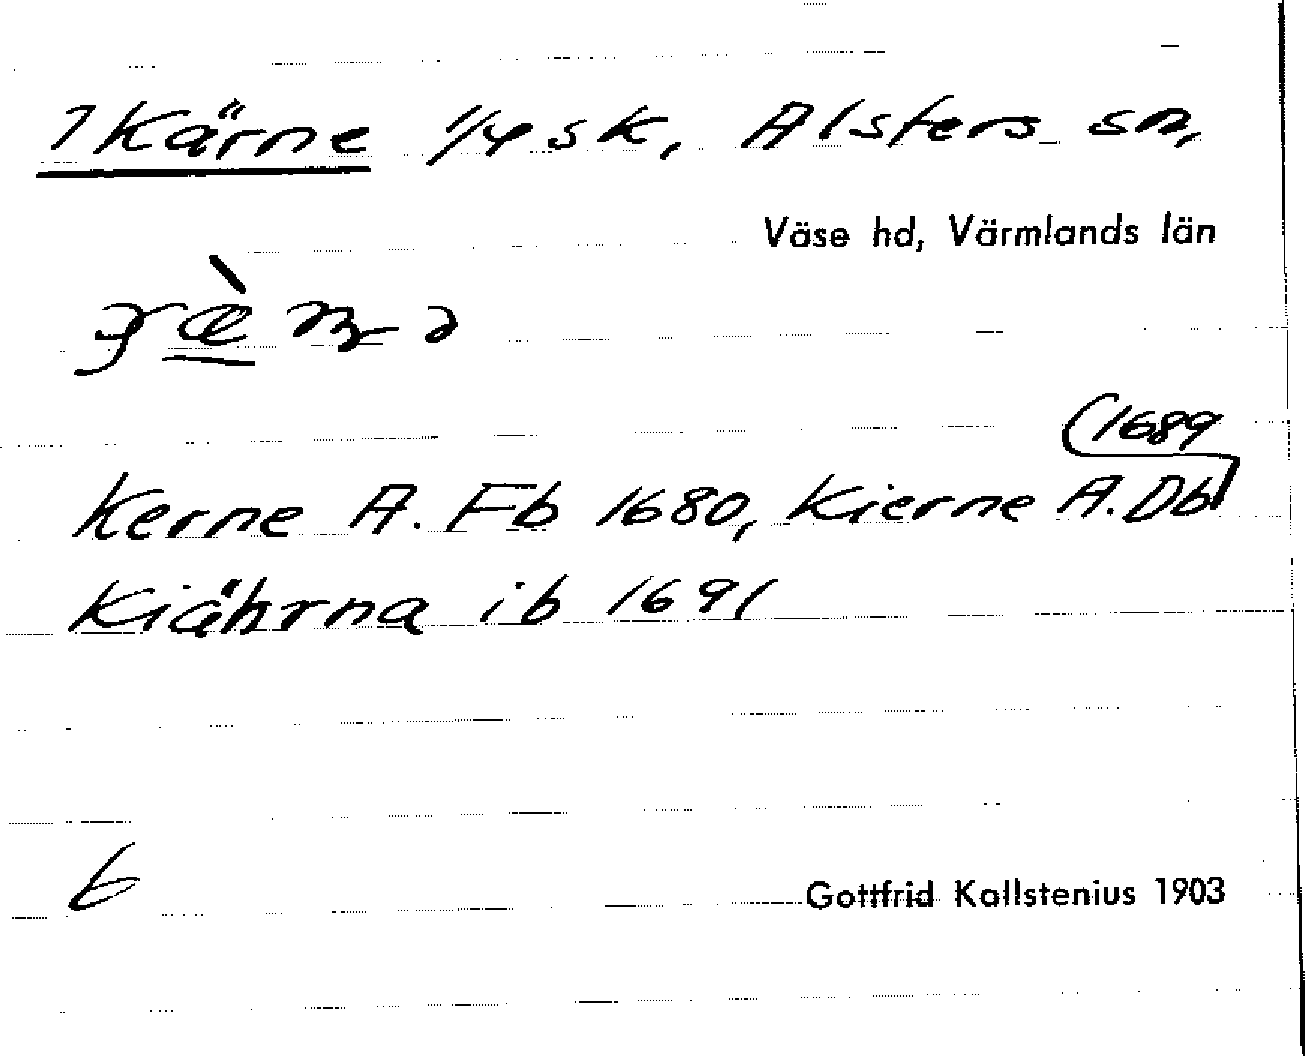 1 Kärne 1/4 sk, Alsters sn,
Väse hd, Värmlands län
(1689
Kerne A. Fb 1680, Kierne A. Db
Kiährna ib 1691
6
Gottfrid Kallstenius 1903